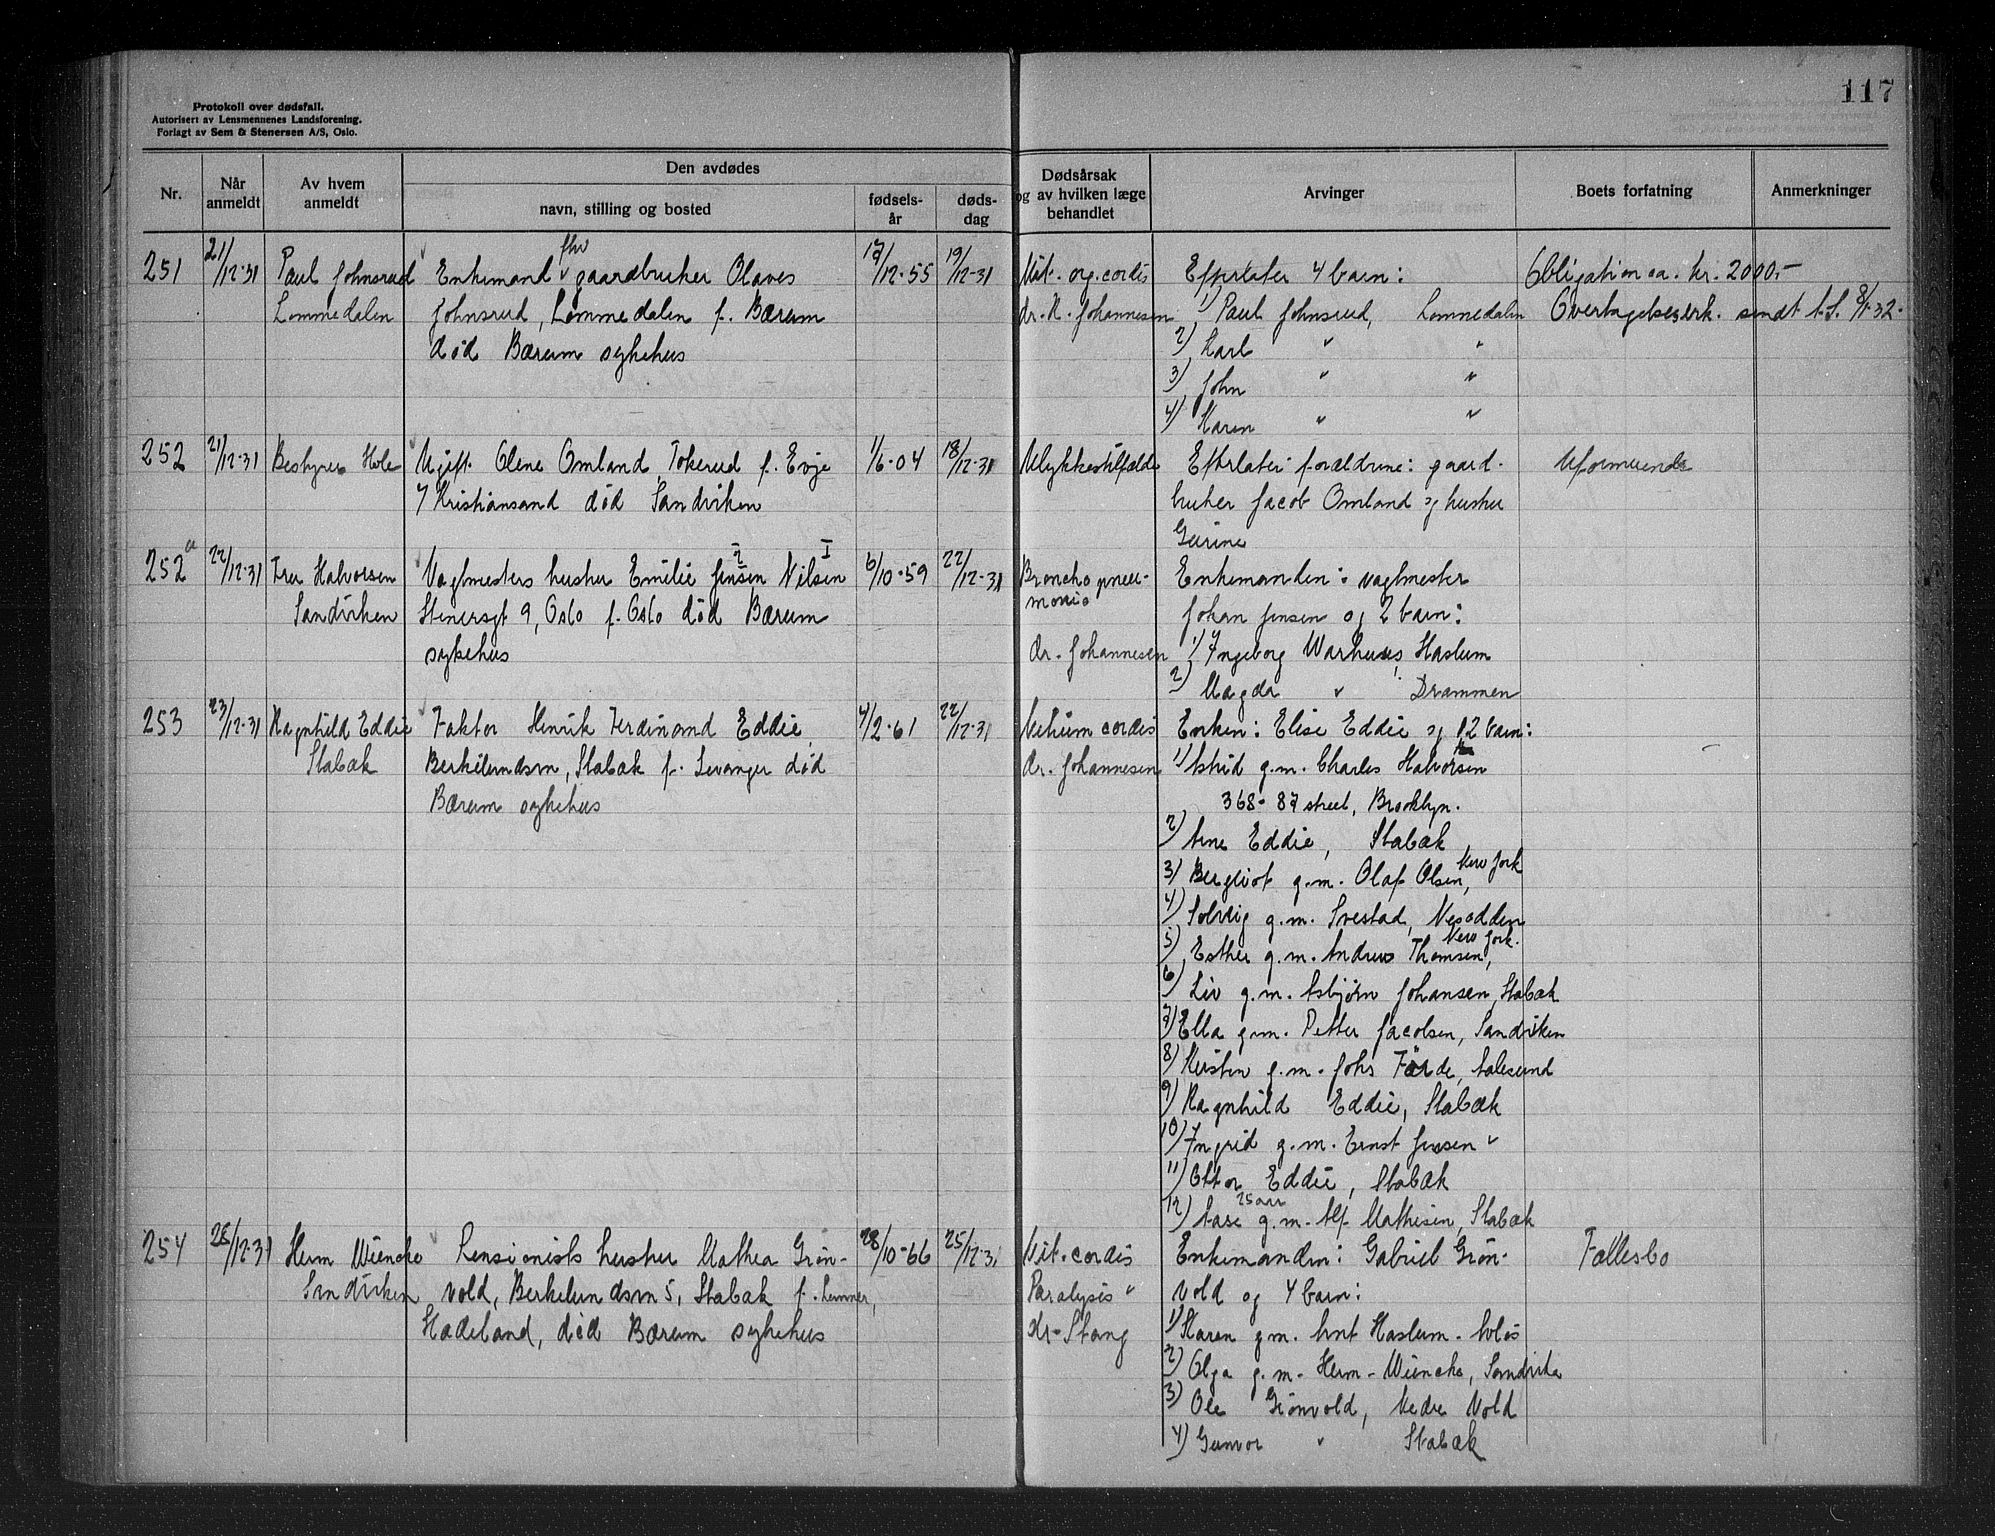 117
Protokoll over dødsfall.
Autorisert av Lensmennenes Landsforening.
Forlagt av Sem & Stenersen A/S, Oslo.
Nr.
Når anmeldt
Av hvem anmeldt
Den avdødes
navn, stilling og bosted
fødsels-år
døds-dag
Dødsårsak og av hvilken læge behandlet
Arvinger
Boets forfatning
Anmerkninger
251
21/12-31
Paul Johnsrud
Lommedalen
fhv
Enkemand gaardbruker Olaves
Johnsrud, Lommedalen f. Bærum
død Bærum sykehus
17/12-55
19/12-31
Vit. org. cordis
dr. K. Johannesen
Efterlater 4 barn:
1) Paul Johnsrud, Lommedalen
2) Karl " "
3) John " "
4) Karen " "
Obligation ca. kr. 2000.-
Overtagelseserk. sendt t.S. 8/1-32.
252
21/12-31
Bestyrer Hole
Ugift. Olene Omland, Tokerud f. Evje
/ Kristiansand død Sandviken
1/6-04
18/12-31
Ulykkestilfælde
Efterlater forældrene: gaard-
bruker Jacob Omland og hustru
Gurine
Uformuende
252 a
22/12-31
Fru Halvorsen
Sandviken
2 I
Vagtmesters hustru Emilie Jensen Nilsen
Stenersgt 9, Oslo f. Oslo død Bærum
sykehus
6/10-59
22/12-31
Broncho pneu-
monia
dr. Johannesen
Enkemanden: vagtmester
Johan Jensen og 2 barn:
1) Ingeborg Warhuus, Haslum
2) Magda " Drammen
253
23/12-31
Ragnhild Eddie
Stabæk
Faktor Henrik Ferdinand Eddie
Berkelundsvn, Stabæk f. Levanger død
Bærum sykehus
4/2-61
22/12-31
Vitium cordis
dr. Johannesen
Enken: Elise Eddie og 12 barn:
1) Astrid g.m. Charles Halvorsen
368-87 street, Brooklyn.
2) Arne Eddie, Stabæk
3) Bergliot g.m. Olaf Olsen, New York
4) Solveig g.m. Svestad, Nesodden
5) Esther g.m. Andrew Thomsen, New York.
6) Liv g.m. Asbjørn Johansen, Stabæk
7) Ella g.m. Petter Jacobsen, Sandviken
8) Kirsten g.m. Johs Förde, Aalesund
9) Ragnhild Eddie, Stabæk
10) Ingrid g.m. Ernst Jensen "
11) Ottar Eddie, Stabæk
25 aar
12) Aase g.m. Alf Mathisen, Stabæk
254
28/12-31
Herm Wiencke
Sandviken
Pensionists hustru Mathea Grön-
vold, Berkelundsvn 5, Stabæk f. Lunner,
Hadeland, død Bærum sykehus
28/10-66
25/12-31
Vit. cordis
Paralysis "
dr. Stang
Enkemanden: Gabriel Grön-
vold og 4 barn:
1) Karen g.m. Ant Haslum.
2) Olga g.m. Herm. Wiencke, Sandvika
3) Ole Grönvold, Nedre Vold
4) Gunvor " Stabæk
Fællesbo